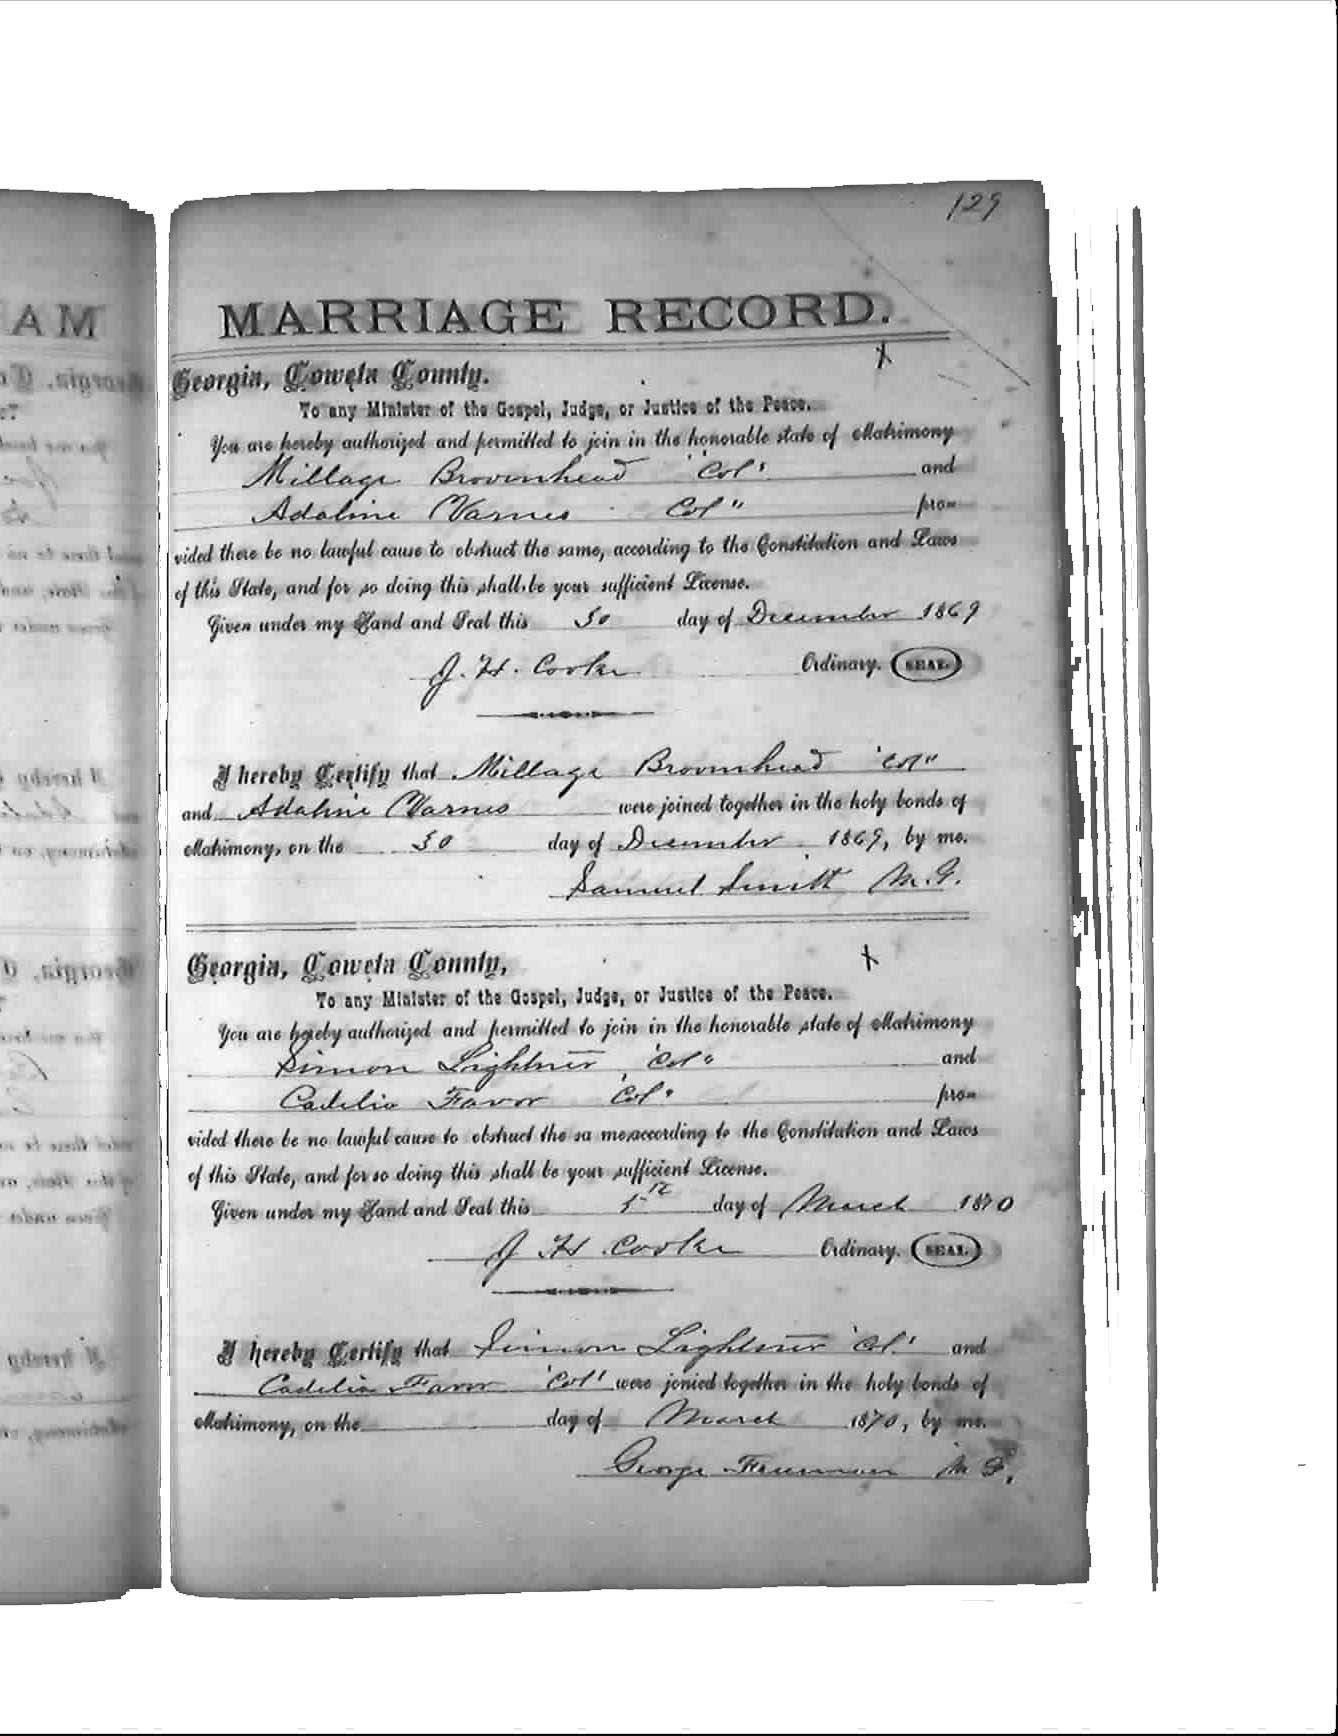 129
MARRIAGE RECORD.
Georgia, Coweta County.
To any Minister of the Gospel, Judge, or Justice of the Peace.
You are hereby authorized and permitted to join in the honorable state of Matrimony
Millage Broomhead "Col" and
Adaline Varnes Col" pro-
vided there be no lawful cause to obstruct the same, according to the Constitution and Laws
of this State, and for so doing this shall be your sufficient License.
Given under my Hand and Seal this 30 day of December 1869
J. H. Cooke Ordinary. SEAL
I hereby Certify that Millage Broomhead "Col"
and Adaline Varnes were joined together in the holy bonds of
Matrimony, on the 30 day of December 1869, by me.
Samuel Smith M.G.
Georgia, Coweta County,
To any Minister of the Gospel, Judge, or Justice of the Peace.
You are hereby authorized and permitted to join in the honorable state of Matrimony
Simon Lightner "Col" and
Cadelia Favor "Col" pro-
vided there be no lawful cause to obstruct the sa me,according to the Constitution and Laws
of this State, and for so doing this shall be your sufficient License.
Given under my Hand and Seal this 5th day of March 1870
J H Cooke Ordinary. SEAL
I hereby Certify that Simon Lightner "Col" and
Cadelia Favor "Col" were jonied together in the holy bonds of
Matrimony, on the day of March 1870, by me.
George Freeman M G.